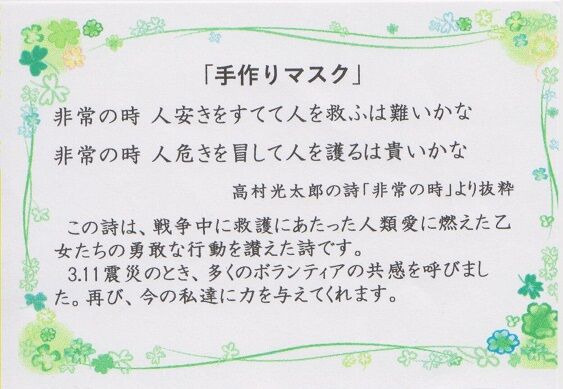 「手作りマスク」
非常の時 人安きをすてて人を救ふは難いかな
非常の時 人危きを冒して人を護るは貴いかな
高村光太郎の詩「非常の時」より抜粋
この詩は、戦争中に救護にあたった人類愛に燃えた乙
女たちの勇敢な行動を讃えた詩です。
3.11震災のとき、多くのボランティアの共感を呼びまし
た。再び、今の私達に力を与えてくれます。